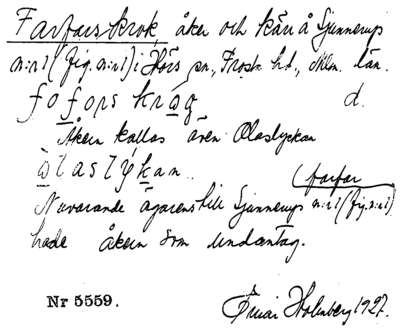 Farfars krok åker och kärr å Sjunnerup
n:r 1 (fig. n:r 1) i Hörs sn., Frosta hd., Mlm. län.
fofors kråg d.
Åkern kallas även Olastyckan
olastykan.
(farfar
Nuvarande ägarens till Sjunnerup n:r 1 (fig. n:r 1)
hade åkern som undantag.
Nr 5559.
Einar Holmberg 1927.